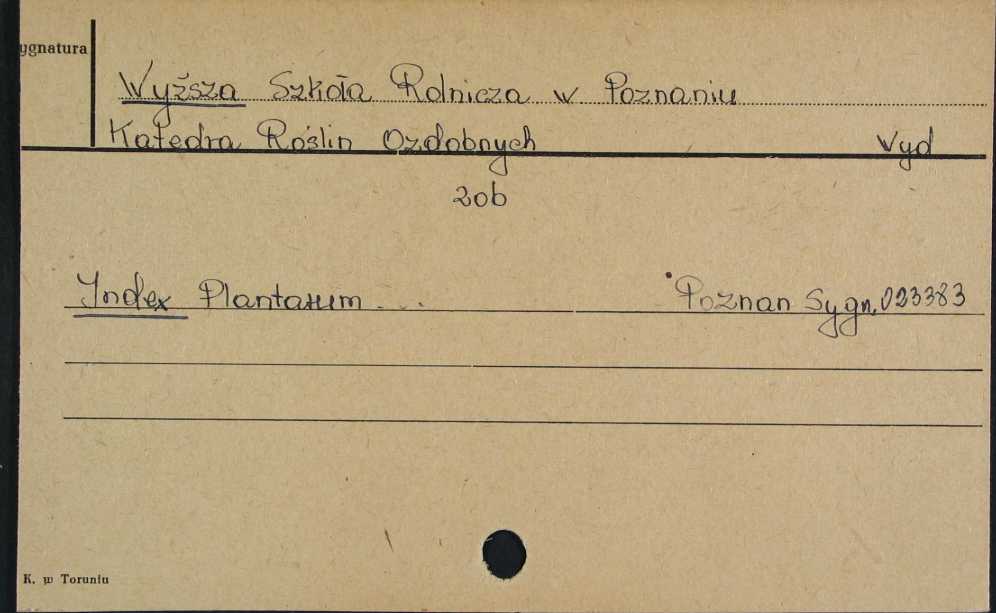 ygnatura
Wyższa Szkoła Rolnicza w Poznaniu
Katedra Roślin Ozdobnych Wyd
zob
Index Plantarum... Poznań Sygn. 023383
K. w Toruniu